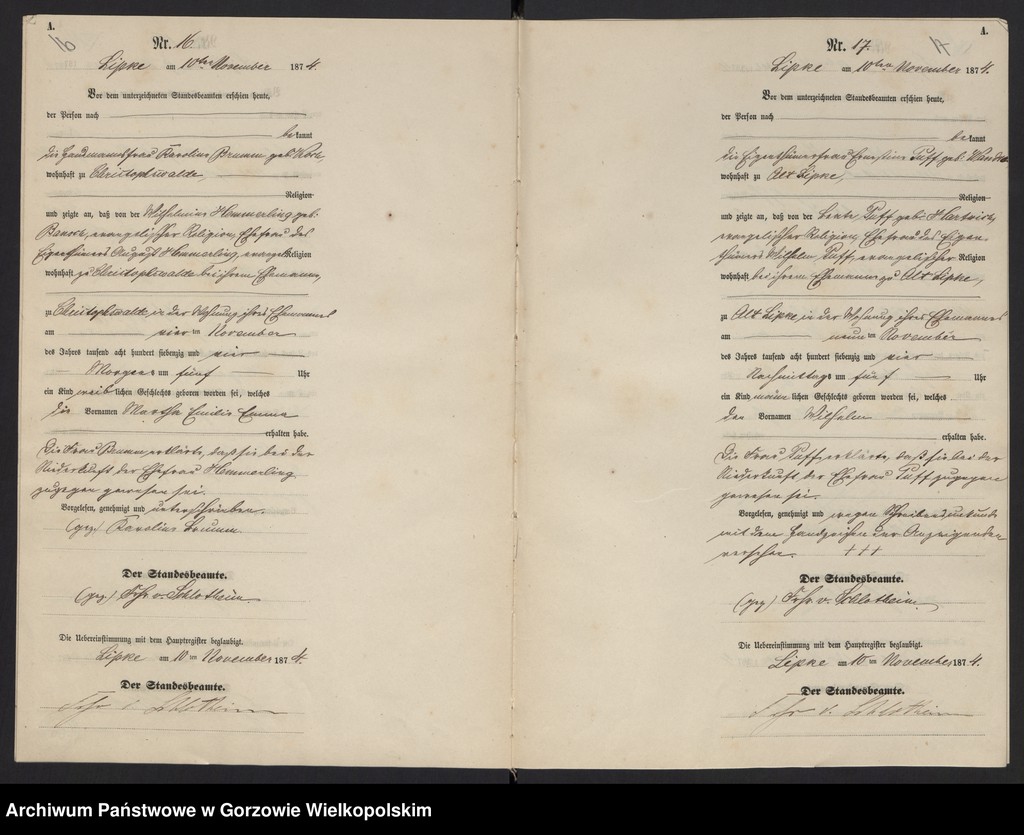 A.
16
Nr. 16.
Lipke am 10ten November 1874.
Vor dem unterzeichneten Standesbeamten erschien heute,
der Person nach
bekannt
die Frau Karoline Brumm geb.
wohnhaft zu Christophswalde,
Religion
und zeigte an, daß von der Wilhelmine Hemmerling geb.
evangelischer Religion, Ehefrau des
Eigenthümers August Hemmerling, Religion
wohnhaft zu Christophswalde bei ihrem Ehemanne,
zu Christophswalde, in der Wohnung ihres Ehemannes
am vier ten November
des Jahres tausend acht hundert siebenzig und vier
Morgens um fünf Uhr
ein Kind weiblichen Geschlechts geboren worden sei, welches
die Vornamen Martha Emilie Emma
erhalten habe.
Die Frau Brumm erklärte, daß sie bei der
Niederkunft der Ehefrau Hemmerling
zugegen gewesen sei.
Vorgelesen, genehmigt und unterschrieben.
(gez) Karoline Brumm.
Der Standesbeamte.
(gez) Frhr. v. Schlotheim
Die Uebereinstimmung mit dem Hauptregister beglaubigt.
Lipke am 10 ten November 1874.
Der Standesbeamte.
Frhr v. Schlotheim
A.
17
Nr. 17.
Lipke am 10ten November 1874.
Vor dem unterzeichneten Standesbeamten erschien heute,
der Person nach
bekannt
die Eigenthümerfrau Ernestine Puff geb.
wohnhaft zu Alt Lipke,
Religion
und zeigte an, daß von der Puff geb.
evangelischer Religion, Ehefrau des Eigen-
thümers Wilhelm Puff, evangelischer Religion
wohnhaft bei ihrem Ehemanne zu Alt Lipke,
zu Alt Lipke, in der Wohnung ihres Ehemannes
am neun ten November
des Jahres tausend acht hundert siebenzig und vier
Nachmittags um fünf Uhr
ein Kind männlichen Geschlechts geboren worden sei, welches
den Vornamen Wilhelm
erhalten habe.
Die Frau Puff erklärte, daß sie bei der
Niederkunft der Ehefrau Puff zugegen
gewesen sei.
Vorgelesen, genehmigt und wegen Schreibensunkunde
mit dem Handzeichen der Anzeigenden
versehen. +++
Der Standesbeamte.
(gez) Frhr v. Schlotheim
Die Uebereinstimmung mit dem Hauptregister beglaubigt.
Lipke am 10 ten November 1874.
Der Standesbeamte.
Frhr v. Schlotheim
Archiwum Państwowe w Gorzowie Wielkopolskim